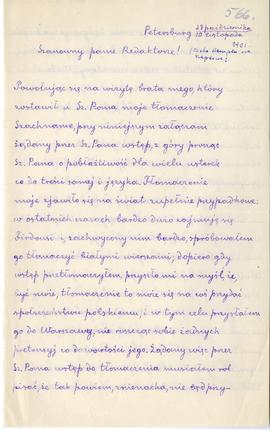 566.
Petersburg 28 października
10 listopada
1901.
Szanowny panie Redaktorze!
Powołując się na wizytę brata mego, który
zostawił u Sz. Pana moje tłómaczenie
Szachname, przy niniejszym załączam
żądany przez Sz. Pana wstęp, z góry prosząc
Sz. Pana o pobłażliwość dla wielu usterek
co do treści samej i języka. Tłómaczenie
moje zjawiło się na świat zupełnie przypadkowo:
w ostatnich czasach bardzo dużo zajmuję się
Firdousi i, zachwycony nim bardzo, spróbowałem
go tłómaczyć białymi wierszami; dopiero gdy
wstęp przetłómaczyłem, przyszło mi na myśl, że,
być może, tłómaczenie to może się na coś przydać
społeczeństwu polskiemu, i w tym celu przysłałem
go do Warszawy, nie roszcząc sobie żadnych
pretensyj co do wartości jego. Żądany więc przez
Sz. Pana wstęp do tłómaczenia musiałem na-
pisać, że tak powiem, znienacka, nie będąc przy-